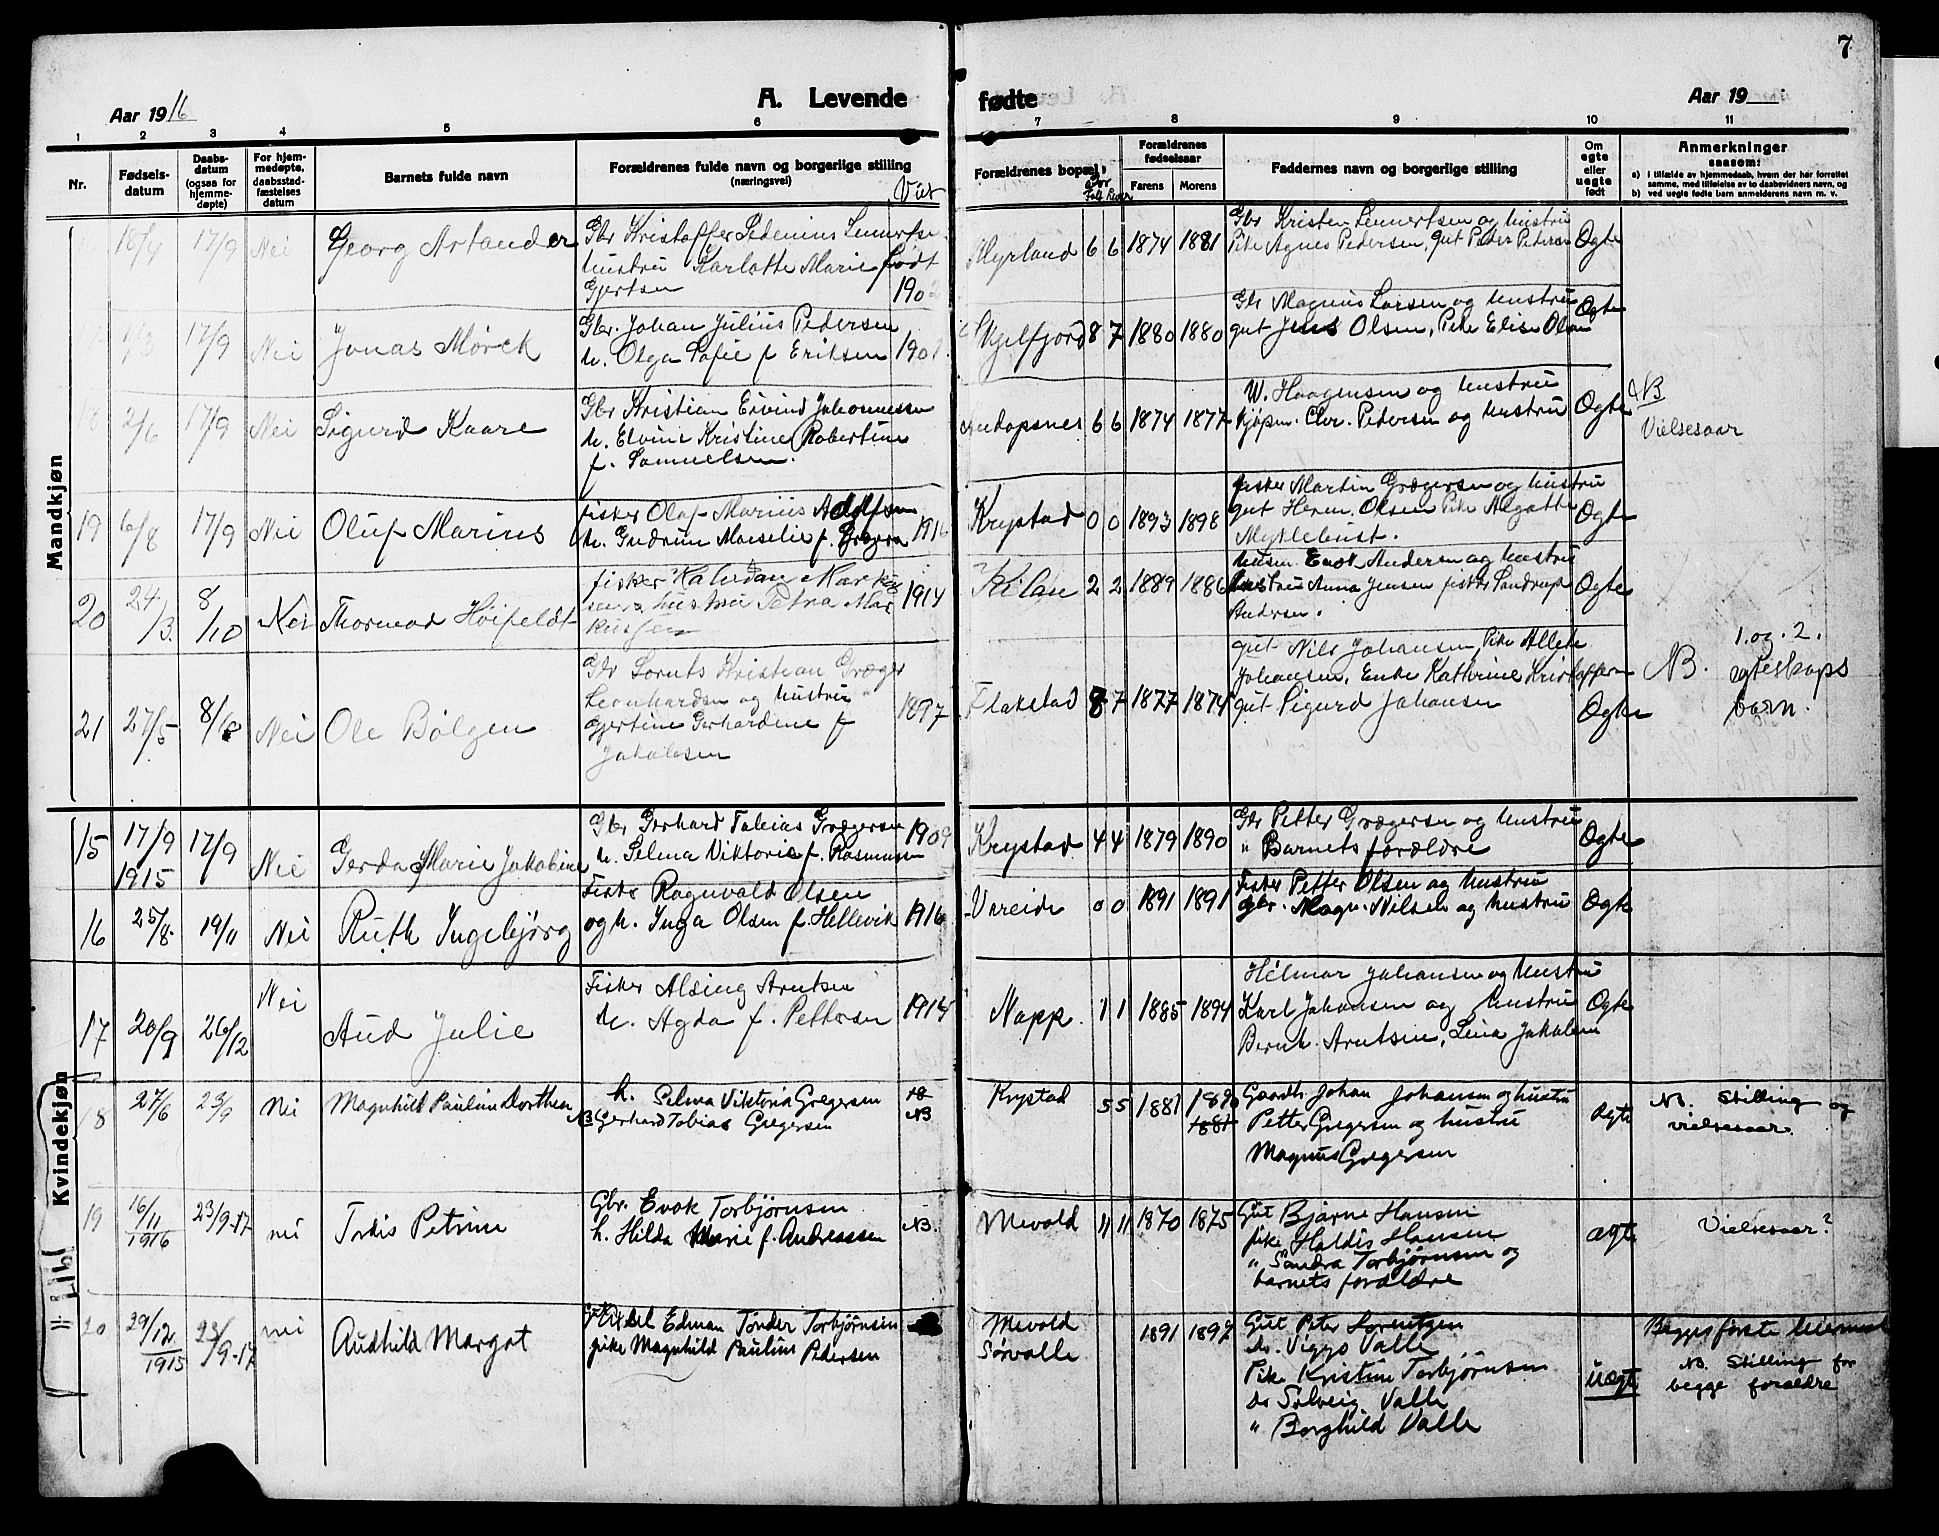 7
Aar 1916
A. Levende
fødte
Aar 19
1 2 3 4 5 6 7 8 9 10 11
Nr.
Fødsels-
datum
Daabs-
datum
(ogsaa for
hjemme-
døpte)
For hjem-
medøpte,
daabsstad-
fæstelses
datum
Barnets fulde navn
Forældrenes fulde navn og borgerlige stilling
(næringsvei)
Viet
Forældrenes bopæl
Forældrenes
fødselsaar
Farens
Morens
Faddernes navn og borgerlige stilling
Om
egte
eller
uegte
født
Anmerkninger
saasom:
a) i tilfælde av hjemmedaab, hvem der har forrettet
samme, med tilføielse av to daabsvidners navn, og
b) ved uegte fødte barn anmelderens navn m. v.
Mandkjøn
18/4 17/9 Nei Georg Artander
Gbr Kristoffer Pedenius Lennertsen
hustru Karlotte Marie født
Gjertsen
Myrland 6 6 1874 1881
Gbr Kristen Lennertsen og hustru
Pike Agnes Pedersen, gut Peder Pedersen
Ogte
17/9 Nei Jonas Mørck
Gbr. Johan Julius Pedersen
h. Olga Sofie f Eriksen
Skjelfjord 8 7 1880 1880
Gbr Magnus Larsen og hustru
gut Jens Olsen, Pike Elise Olsen
Ogte
18 2/6 17/9 Nei Sigurd Kaare
Gbr Kristian Eivind Johannessen
h. Elvine Kristine Robertine
f. Samuelsen.
Andopsnes 6 6 1874 1877
W. Haagensen og hustru
Kjøpm. Chr. Pedersen og hustru
Ogte
NB
Vielsesaar
19 6/8 17/9 Nei Oluf Marius
fisker Olaf Marius Adolfsen
h. Gudrun Marselie f. 1916
Krystad 0 0 1893 1898
fisker Martin Grægersen og hustru
gut Herm. Olsen Pike Algatte
Myklebust.
Ogte
20 24/3 8/10 Nei Thormod Høifeldt
fisker Halvdan Mark
hustru Petra Mar
kussen
1914
Kilan 2 2 1889 1886
Enok Andersen og hustru
hustru Anna Jensen fisker
Andersen.
Ogte
21 27/5 8/10 Nei Ole Bølgen
Gbr Kristian Græger
Leonhardsen og hustru
Gjertine Gerhardine f
Jakobsen
1897
Flakstad 8 7 1877 1874
gut Nils Johansen, Pike Allete
Johansen, Enke Kathrine Kristoffersen
gut Sigurd Johansen
Ogte
NB. 1. og. 2.
egteskaps
barn.
Kvindekjøn
1916
15 17/9 1915 17/9 Nei Gerda Marie Jakobine
Gbr Gerhard Tobias Grægersen
h. Selma Viktoria f. Rasmussen
1909
Krystad 4 4 1879 1890
Gbr Petter Grægersen og hustru
" Barnets forældre
Ogte
16 25/8 19/11 Nei Ruth Ingebjørg
Fisker Ragnvald Olsen
og h. Inga Olsen f. Hellevik
1916
Vareide 0 0 1891 1891
Fisker Petter Olsen og hustru
gbr. Magn. Nilsen og hustru
Ogte
17 20/9 26/12 Nei Aud Julie
Fisker Alsing Arntsen
h. Agda f. Pettersen
1914
Napp 1 1 1885 1894
Hilmar Johansen og hustru
Karl Johansen og hustru
Bernh. Arntsen, Lina Jakobsen
Ogte
18 27/6 23/9 Nei Magnhild Pauline Dorthea
h. Selma Viktoria Gregersen
NB Gerhard Tobias Gregersen
NB
Krystad 5 5 1881 1890
1881
Gaardb Johan Johansen og hustru
Petter Gregersen og hustru
Magnus Gregersen
Ægte
NB. Stilling og
vielsesaar.
19 16/11 1916 23/9-17 nei Tordis Petrine
Gbr. Evok Torbjørnsen
h. Hilda Marie f. Andreassen
NB.
Mevold 11 11 1870 1875
Gut Bjarne Hansen
pike Haldis Hansen
" Sandra Torbjørnsen og
barnets forældre
ægte
Vielsesaar?
20 29/12 1915 23/9-17 nei Audhild Margot
Edman Tønder Torbjørnsen
pike Magnhild Pauline Pedersen
Mevold
Sørvalle
1891 1897
Gut Peter Lorentzen
do. Viggo Valle
Pike Kristine Torbjørnsen
do Solveig Valle
" Borghild Valle
uægte
Begges første leiermaal
NB. Stilling for
begge forældre